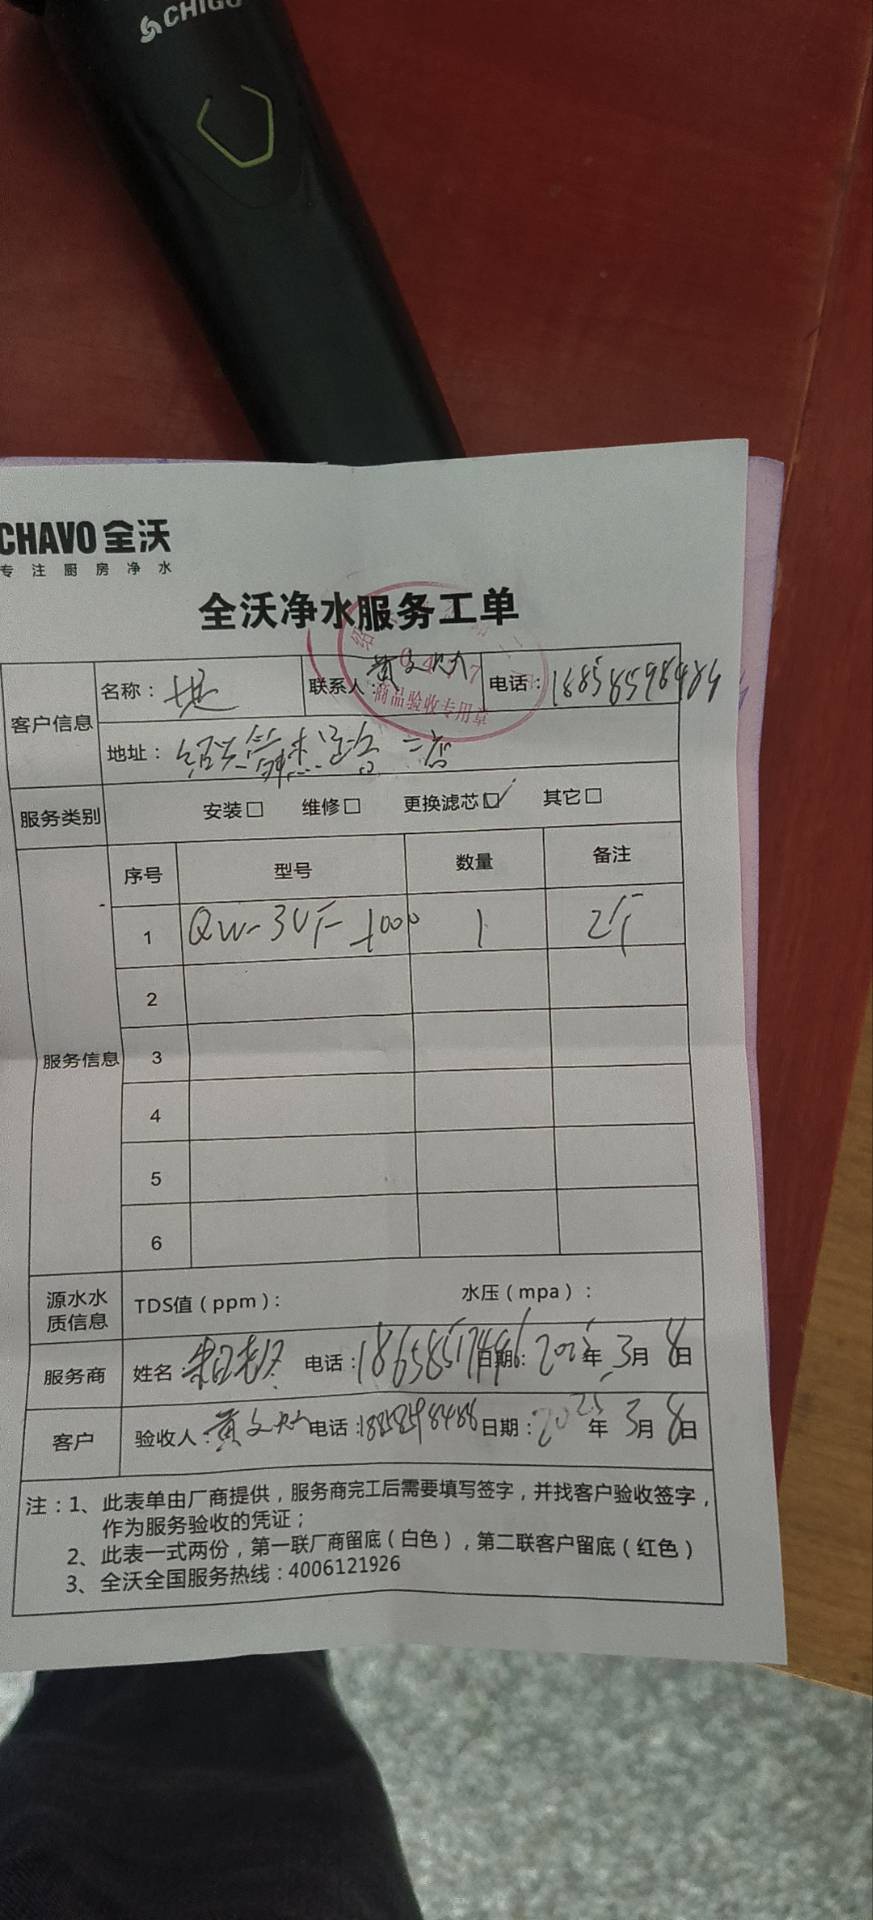 CHIGO
CHAVO 全沃
专注厨房净水
全沃净水服务工单
客户信息
名称：
联系人：黄文
商品验收专用章
电话：
地址：绍兴 二店
服务类别
安装□ 维修□ 更换滤芯☑ 其它□
服务信息
序号 型号 数量 备注
1 QW-3UF-1000 1 2斤
2
3
4
5
6
源水水质信息
TDS值（ppm）：
水压（mpa）：
服务商 姓名： 电话： 日期：2025年3月8日
客户 验收人：黄文 电话：18858598488 日期：2025年3月8日
注：1、此表单由厂商提供，服务商完工后需要填写签字，并找客户验收签字，
作为服务验收的凭证；
2、此表一式两份，第一联厂商留底（白色），第二联客户留底（红色）
3、全沃全国服务热线：4006121926